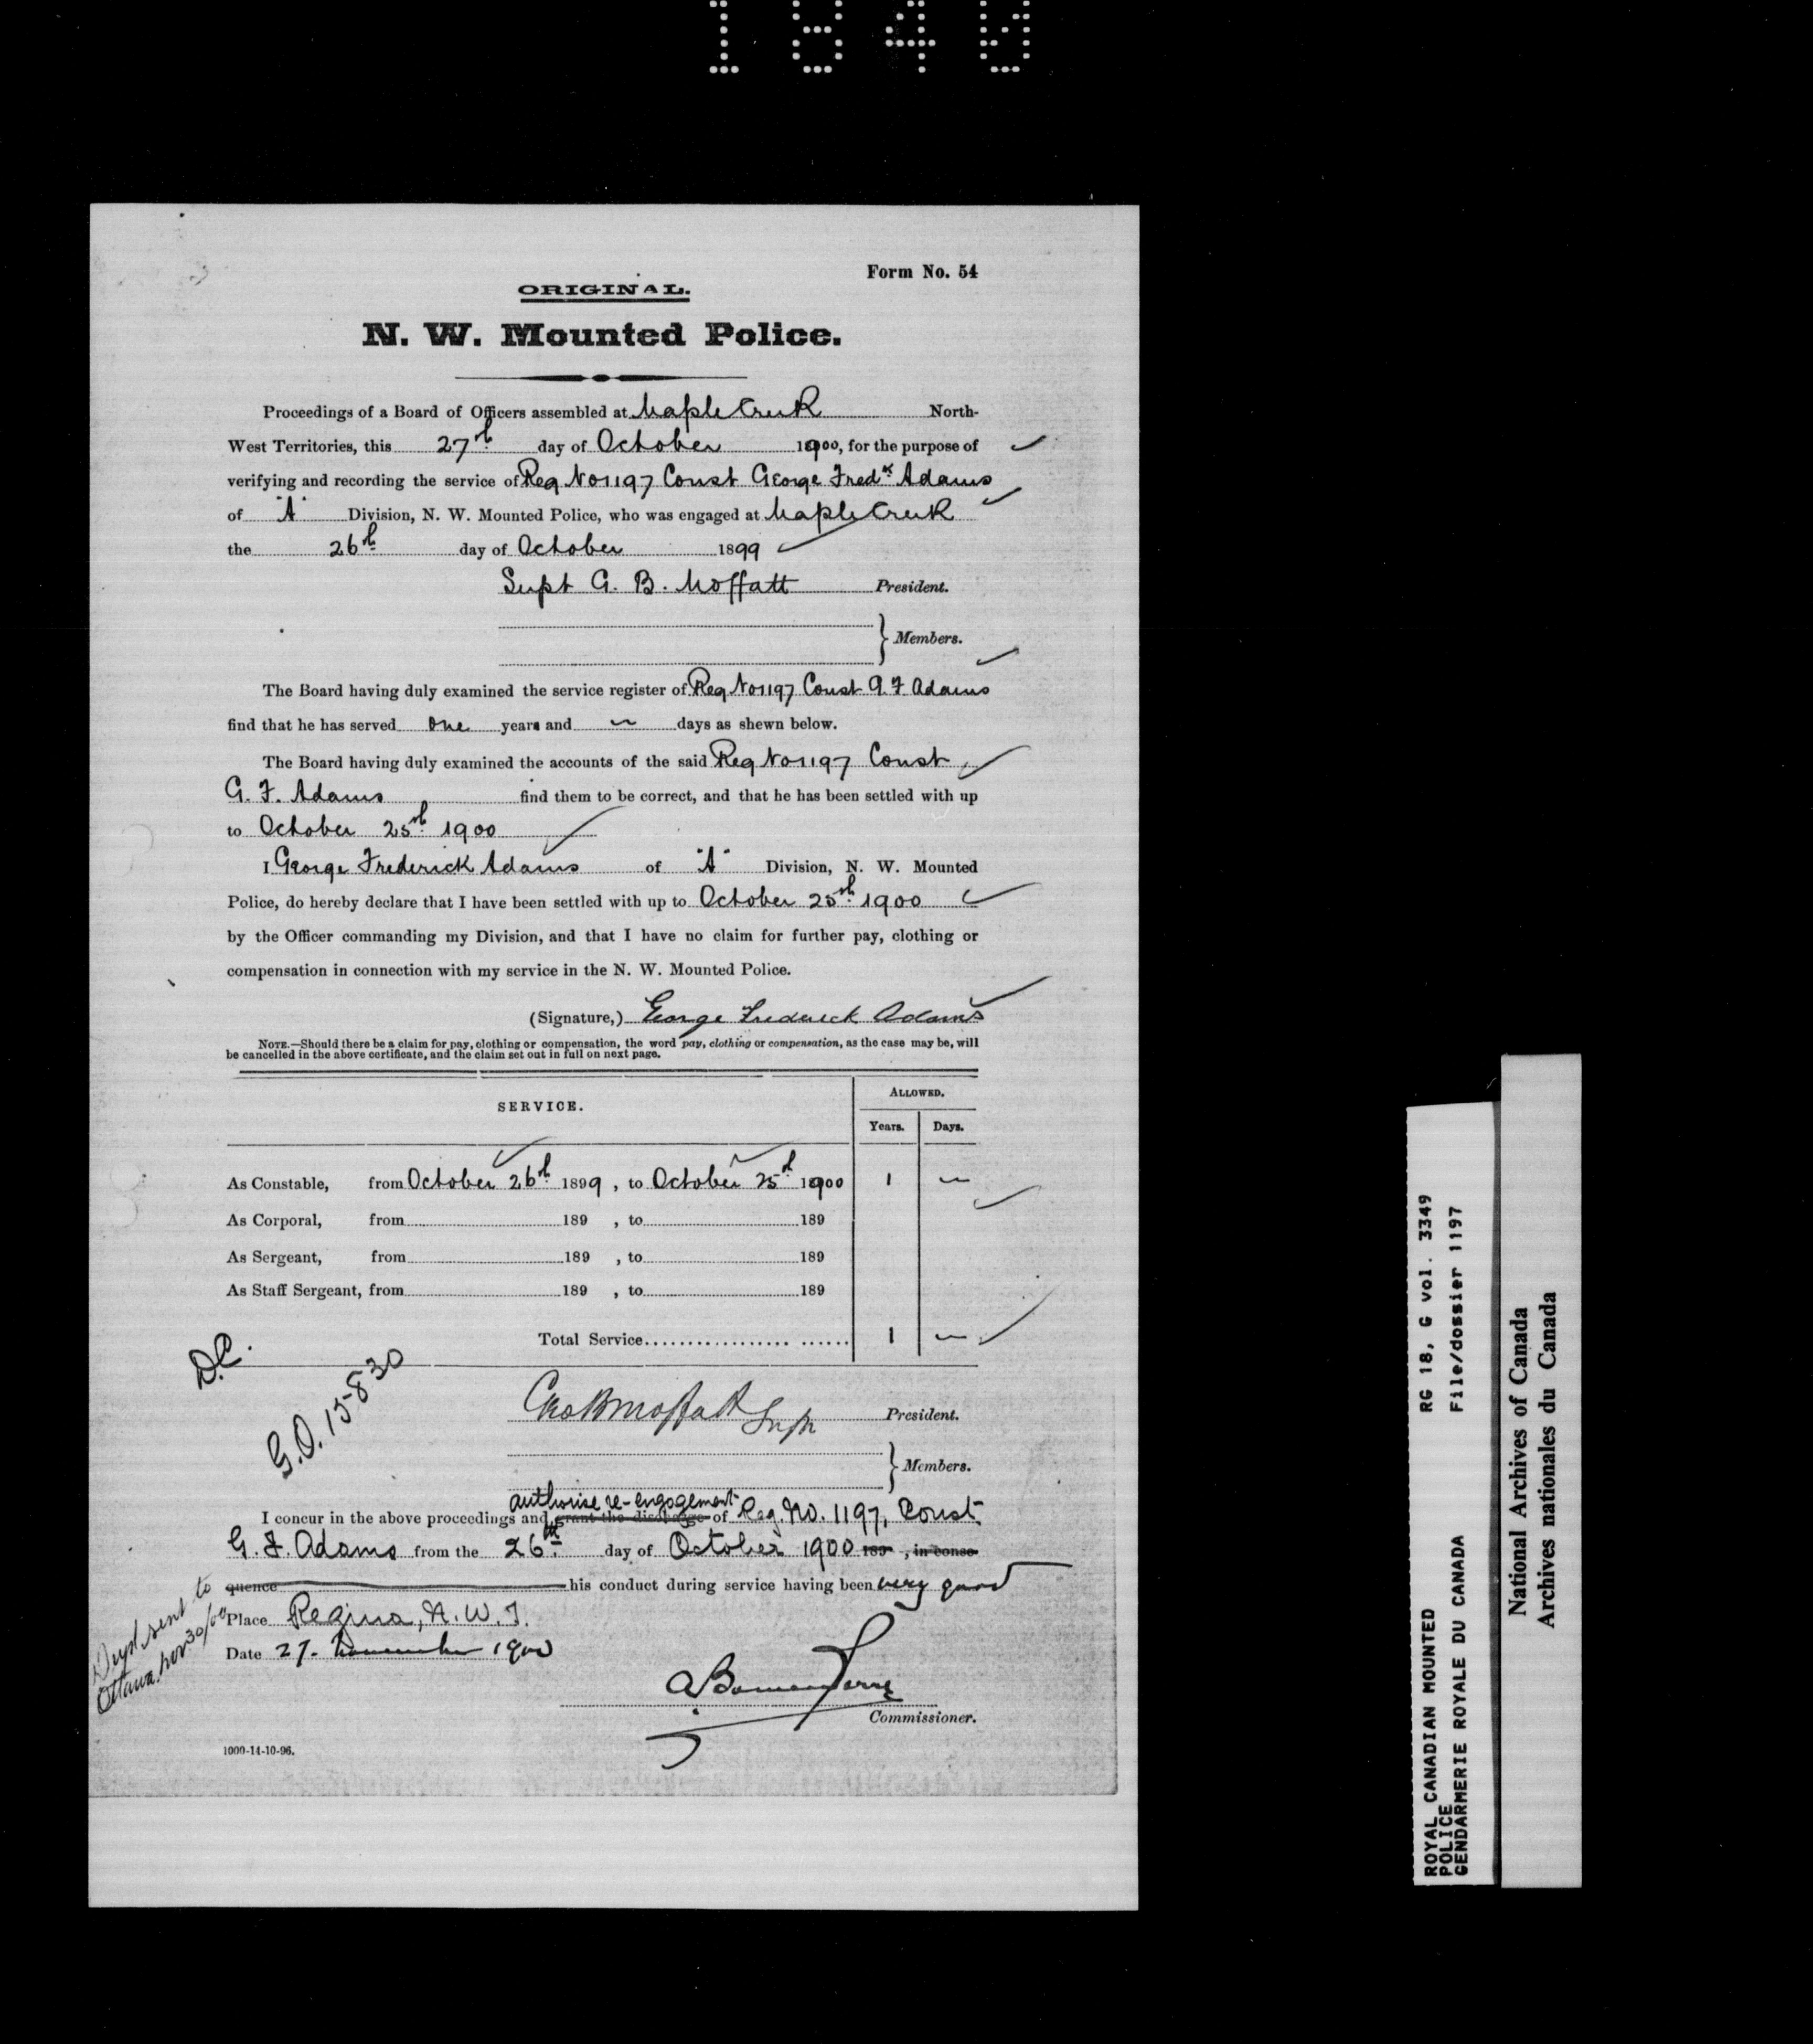 1840
Form No. 54
ORIGINAL.
N. W. Mounted Police.
Proceedings of a Board of Officers assembled at Maple Creek North-
West Territories, this 27th day of October 1900, for the purpose of
verifying and recording the service of Reg No 1197 Const George Fredk Adams
of "A" Division, N. W. Mounted Police, who was engaged at Maple Creek
the 26th day of October 1899
Supt G. B. Moffatt President.
Members.
The Board having duly examined the service register of Reg No 1197 Const G. F Adams
find that he has served one years and — days as shewn below.
The Board having duly examined the accounts of the said Reg No 1197 Const
G. F. Adams find them to be correct, and that he has been settled with up
to October 25th 1900
I George Frederick Adams of "A" Division, N. W. Mounted
Police, do hereby declare that I have been settled with up to October 25th 1900
by the Officer commanding my Division, and that I have no claim for further pay, clothing or
compensation in connection with my service in the N. W. Mounted Police.
(Signature,) George Frederick Adams
NOTE.—Should there be a claim for pay, clothing or compensation, the word pay, clothing or compensation, as the case may be, will
be cancelled in the above certificate, and the claim set out in full on next page.
SERVICE.
ALLOWED.
Years. Days.
As Constable, from October 26th 1899, to October 25th 1900 1 —
As Corporal, from 189 , to 189
As Sergeant, from 189 , to 189
As Staff Sergeant, from 189 , to 189
Total Service 1 —
D.C.
G.O. 15830
Geo B Moffatt Supt President.
Members.
authorise re-engagement
I concur in the above proceedings and grant the discharge of Reg. No. 1197, Const.
G. F. Adams from the 26th day of October 1900 189 , in conse-
quence his conduct during service having been very good
Place Regina, N.W.T.
Date 27. November 1900
Dupl. sent to
Ottawa Nov 30/00
A Bowen Perry
Commissioner.
1000-14-10-96.
ROYAL CANADIAN MOUNTED RG 18, G vol. 3349
POLICE
GENDARMERIE ROYALE DU CANADA File/dossier 1197
National Archives of Canada
Archives nationales du Canada